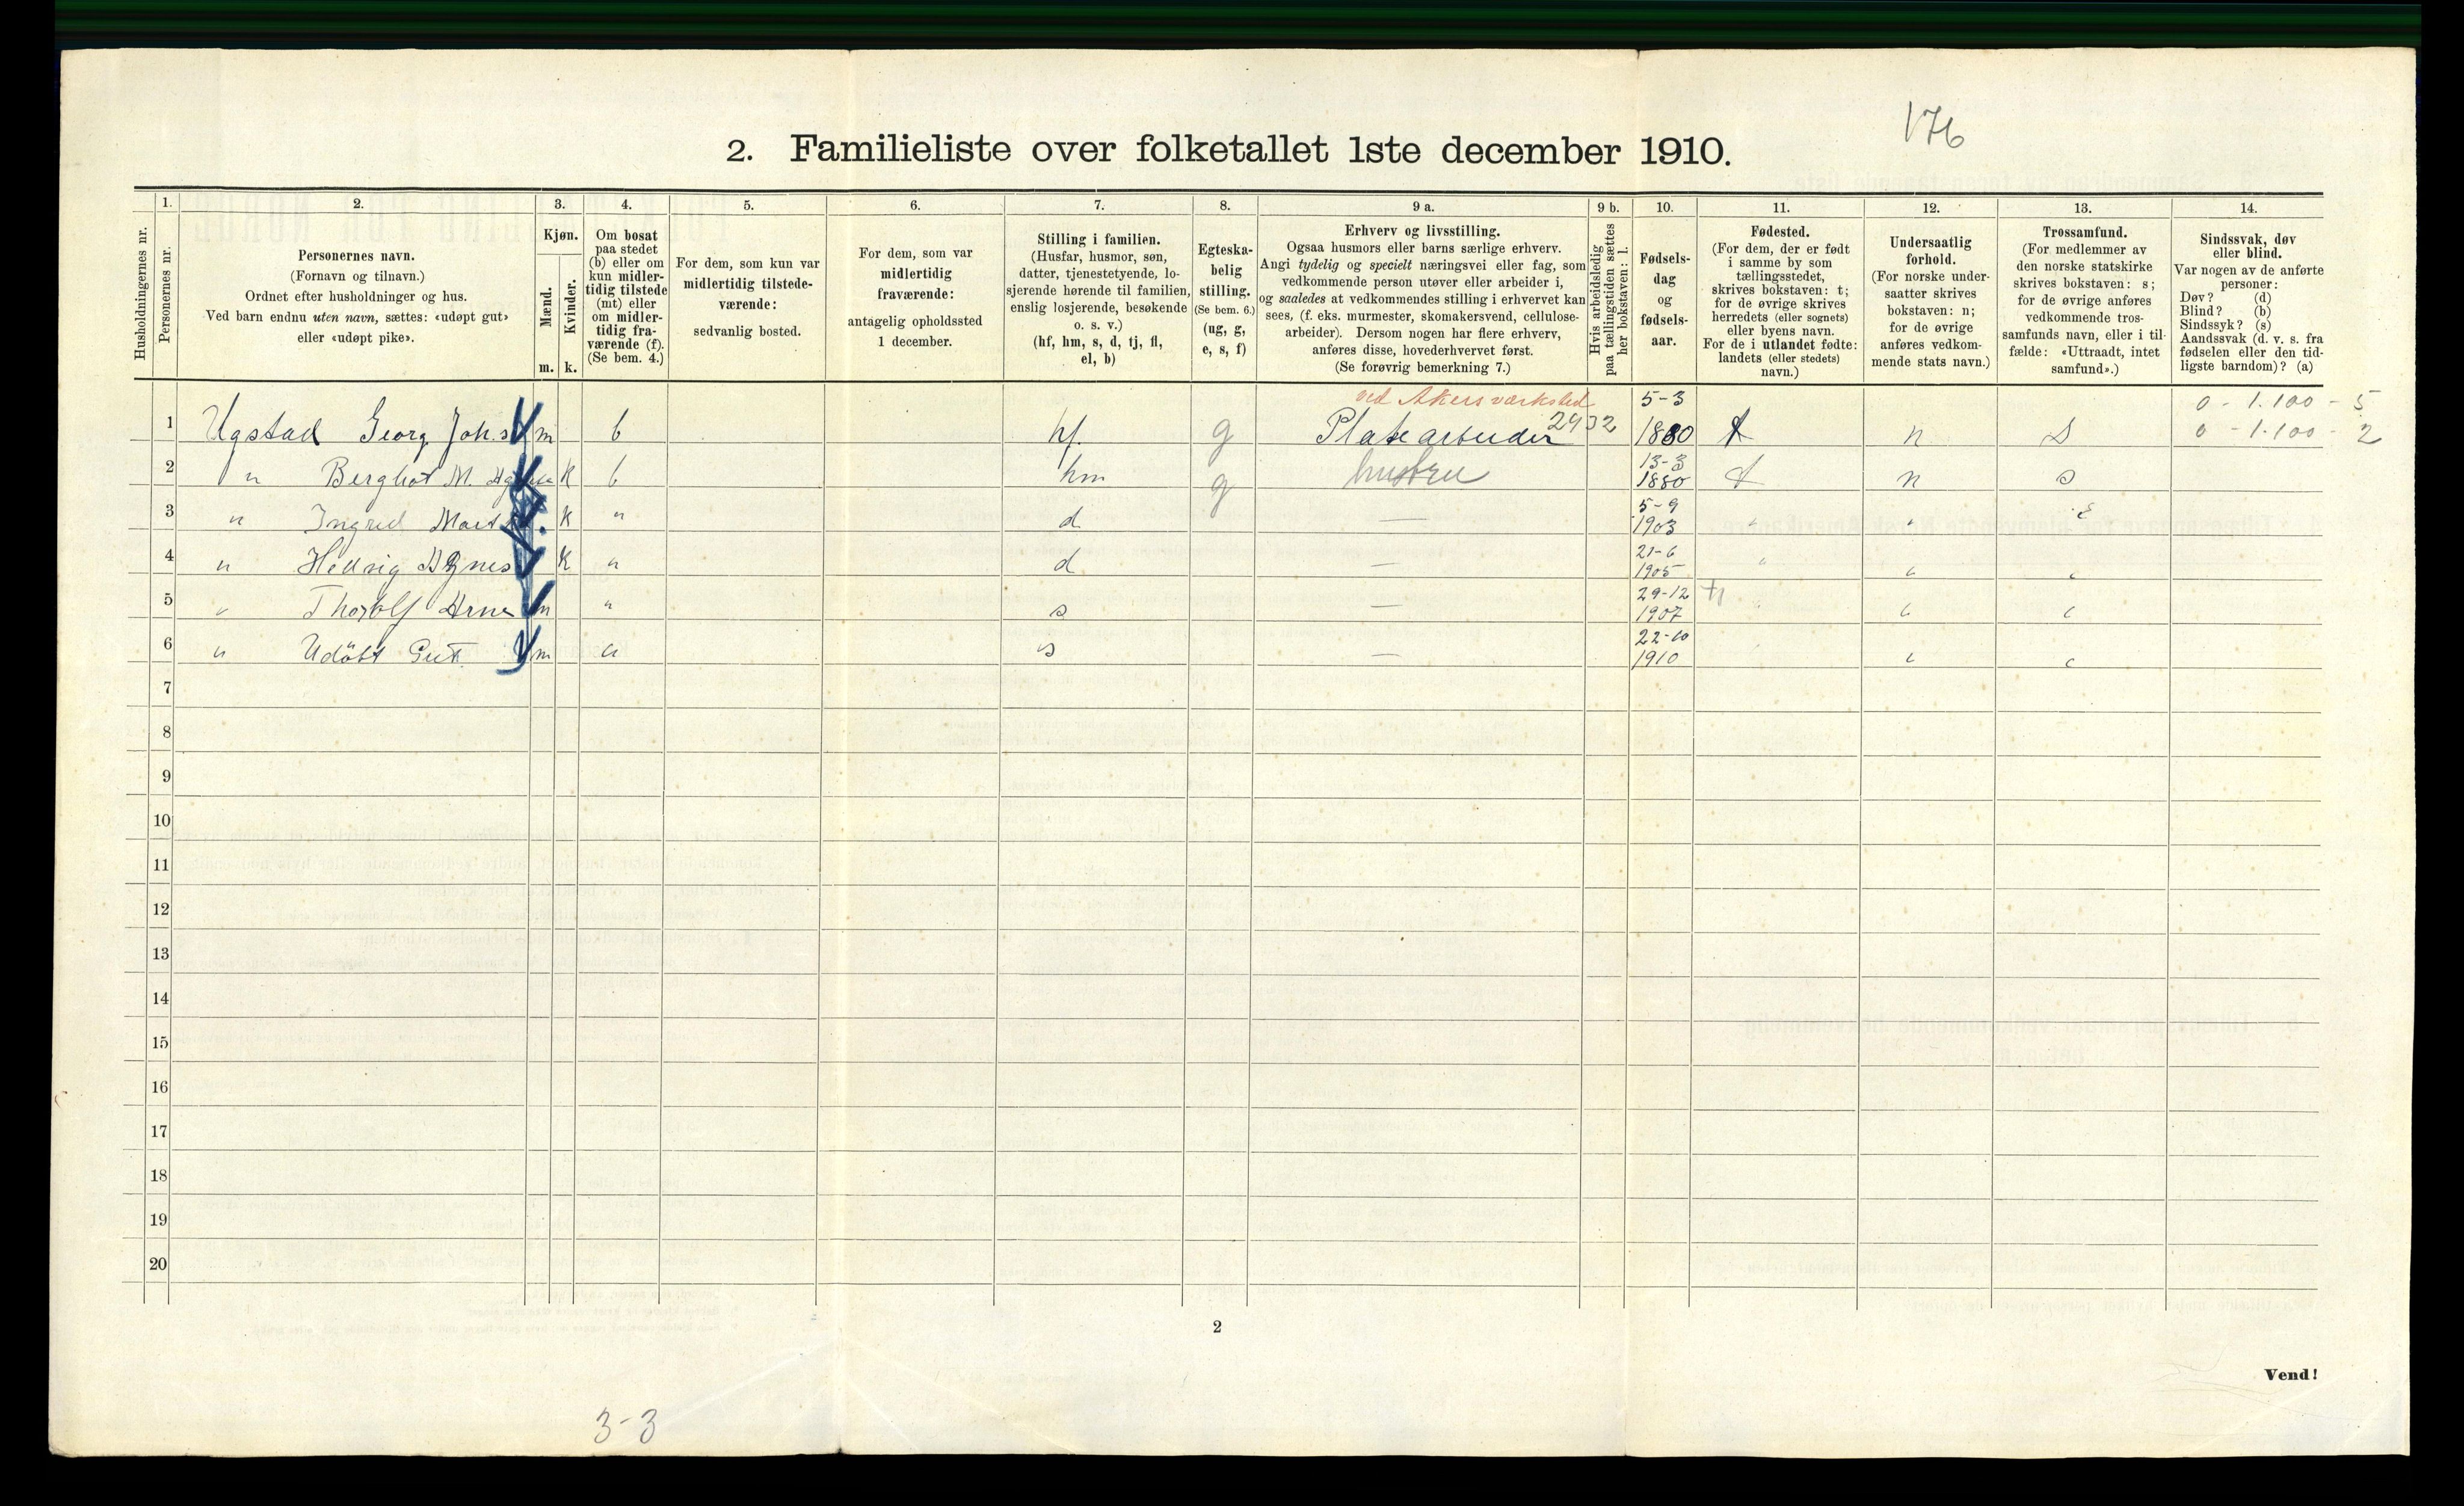 176
2. Familieliste over folketallet 1ste december 1910.
Husholdningernes nr.
1.
Personernes nr.
2.
Personernes navn.
(Fornavn og tilnavn.)
Ordnet efter husholdninger og hus.
Ved barn endnu uten navn, sættes: «udøpt gut»
eller «udøpt pike».
3.
Kjøn.
Mænd.
Kvinder.
m. k.
4.
Om bosat
paa stedet
(b) eller om
kun midler-
tidig tilstede
(mt) eller
om midler-
tidig fra-
værende (f).
(Se bem. 4.)
5.
For dem, som kun var
midlertidig tilstede-
værende:
sedvanlig bosted.
6.
For dem, som var
midlertidig
fraværende:
antagelig opholdssted
1 december.
7.
Stilling i familien.
(Husfar, husmor, søn,
datter, tjenestetyende, lo-
sjerende hørende til familien,
enslig losjerende, besøkende
o. s. v.)
(hf, hm, s, d, tj, fl,
el, b)
8.
Egteska-
belig
stilling.
(Se bem. 6.)
(ug, g,
e, s, f)
9 a.
Erhverv og livsstilling.
Ogsaa husmors eller barns særlige erhverv.
Angi tydelig og specielt næringsvei eller fag, som
vedkommende person utøver eller arbeider i,
og saaledes at vedkommendes stilling i erhvervet kan
sees, (f. eks. murmester, skomakersvend, cellulose-
arbeider). Dersom nogen har flere erhverv,
anføres disse, hovederhvervet først.
(Se forøvrig bemerkning 7.)
9 b.
Hvis arbeidsledig
paa tællingstiden sættes
her bokstaven: l.
10.
Fødsels-
dag
og
fødsels-
aar.
11.
Fødested.
(For dem, der er født
i samme by som
tællingsstedet,
skrives bokstaven: t;
for de øvrige skrives
herredets (eller sognets)
eller byens navn.
For de i utlandet fødte:
landets (eller stedets)
navn.)
12.
Undersaatlig
forhold.
(For norske under-
saatter skrives
bokstaven: n;
for de øvrige
anføres vedkom-
mende stats navn.)
13.
Trossamfund.
(For medlemmer av
den norske statskirke
skrives bokstaven: s;
for de øvrige anføres
vedkommende tros-
samfunds navn, eller i til-
fælde: «Uttraadt, intet
samfund».)
14.
Sindssvak, døv
eller blind.
Var nogen av de anførte
personer:
Døv? (d)
Blind? (b)
Sindssyk? (s)
Aandssvak (d. v. s. fra
fødselen eller den tid-
ligste barndom)? (a)
ved Akers værksted 5-3 0 - 1.100 - 5
1 Ugstad Georg Joh.s m b hf. g Platearbeider 2432 1880 t n s 0 - 1.100 - 2
2 " Berghot M. k b hm g hustru 13-3 1880 t n s
3 " Ingrid k " d — 5-9 1903 " "
4 " Hedvig Agnes k " d — 21-6 1905 " " "
5 " Thorolf Arne m " s — 29-12 1907 " " "
6 " Udöbt Gut m " s — 22-10 1910 " "
7
8
9
10
11
12
13
14
15
16
17
18
19
20
2
Vend!
3-3